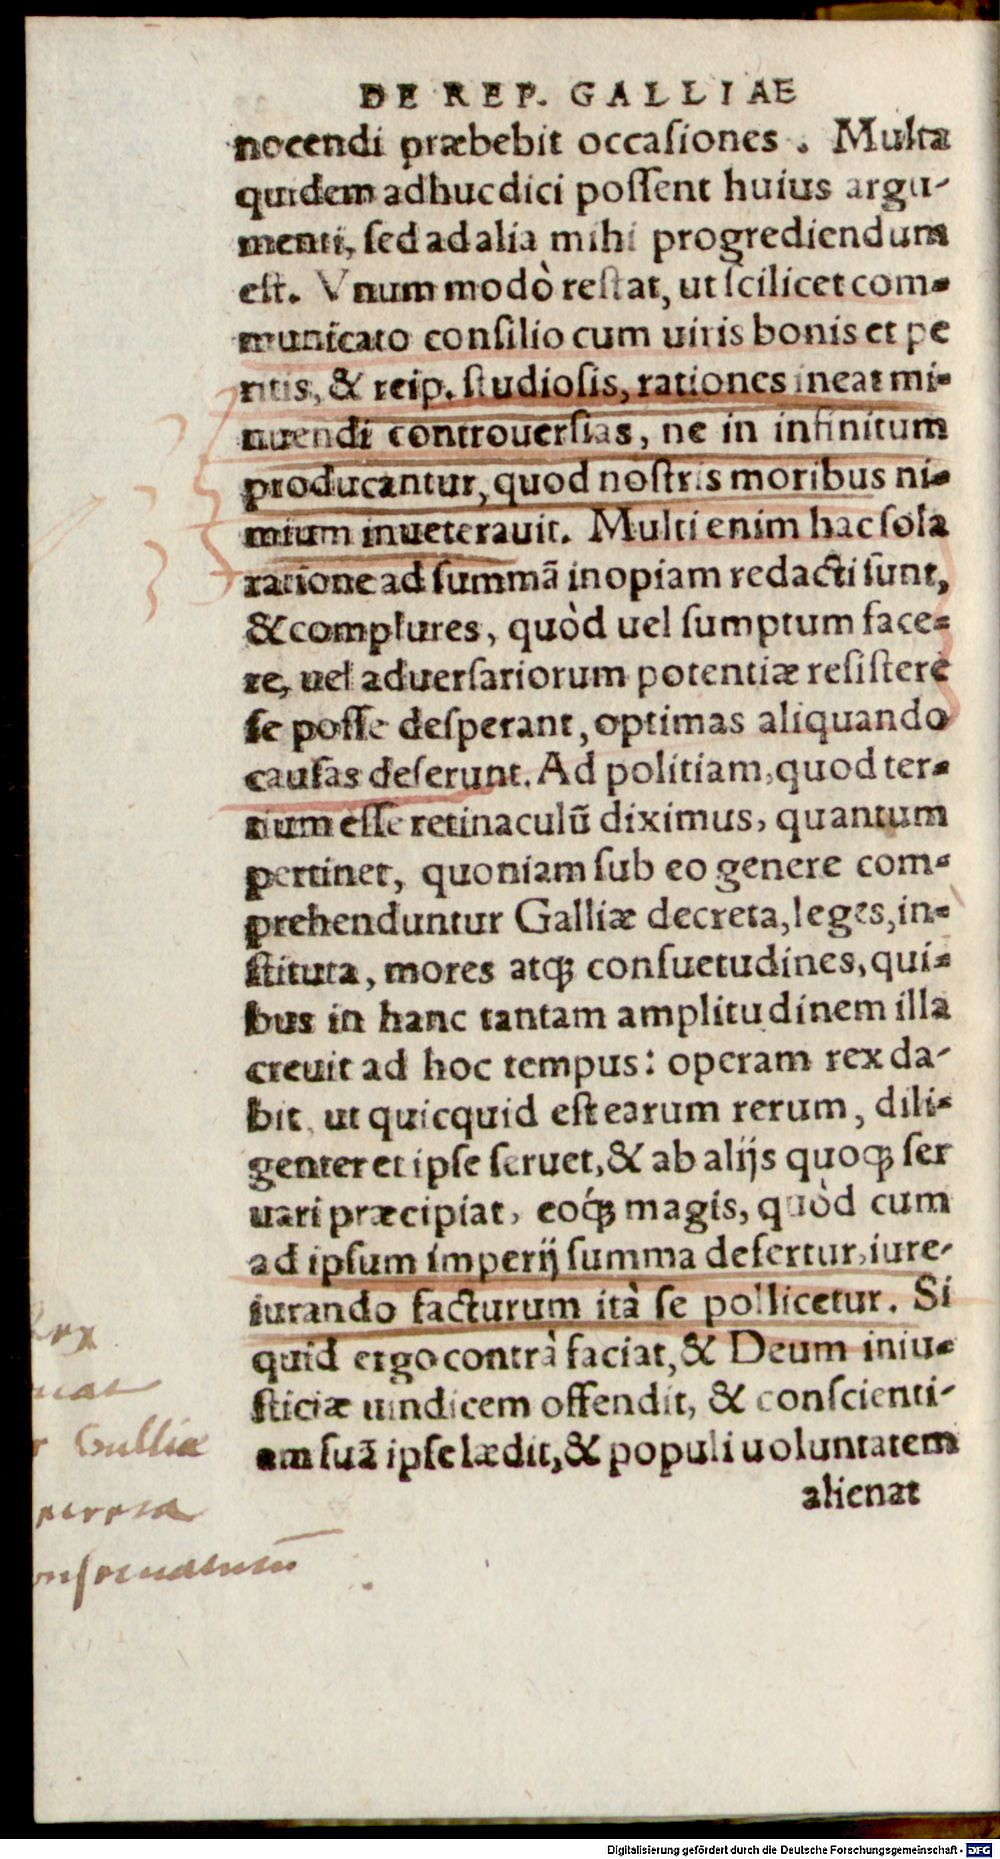 DE REP. GALLIAE
nocendi præbebit occaſiones . Multa
quidem adhuc dici poſſent huius argu-
menti, ſed ad alia mihi progrediendum
eſt. Vnum modò reſtat, ut ſcilicet com-
municato conſilio cum uiris bonis et pe
ritis, & reip. ſtudioſis, rationes ineat mi-
nuendi controuerſias, ne in infinitum
producantur, quod noſtris moribus ni-
mium inueterauit. Multi enim hac ſola
ratione ad ſummā inopiam redacti ſunt,
& complures, quòd uel ſumptum face-
re, uel aduerſariorum potentiæ reſiſtere
ſe poſſe deſperant, optimas aliquando
cauſas deſerunt. Ad politiam, quod ter-
tium eſſe retinaculū diximus, quantum
pertinet, quoniam ſub eo genere com-
prehenduntur Galliæ decreta, leges, in-
ſtituta, mores atq; conſuetudines, qui-
bus in hanc tantam amplitudinem illa
creuit ad hoc tempus: operam rex da-
bit, ut quicquid eſt earum rerum, dili-
genter et ipſe ſeruet, & ab alijs quoq; ſer
uari præcipiat, eoq́; magis, quòd cum
ad ipſum imperij ſumma defertur, iure-
iurando facturum ità ſe pollicetur. Si
quid ergo contrà faciat, & Deum iniu-
ſticiæ uindicem offendit, & conſcienti-
am ſuā ipſe lædit, & populi uoluntatem
alienat
Rex
Galliæ
Digitalisierung gefördert durch die Deutsche Forschungsgemeinschaft - DFG